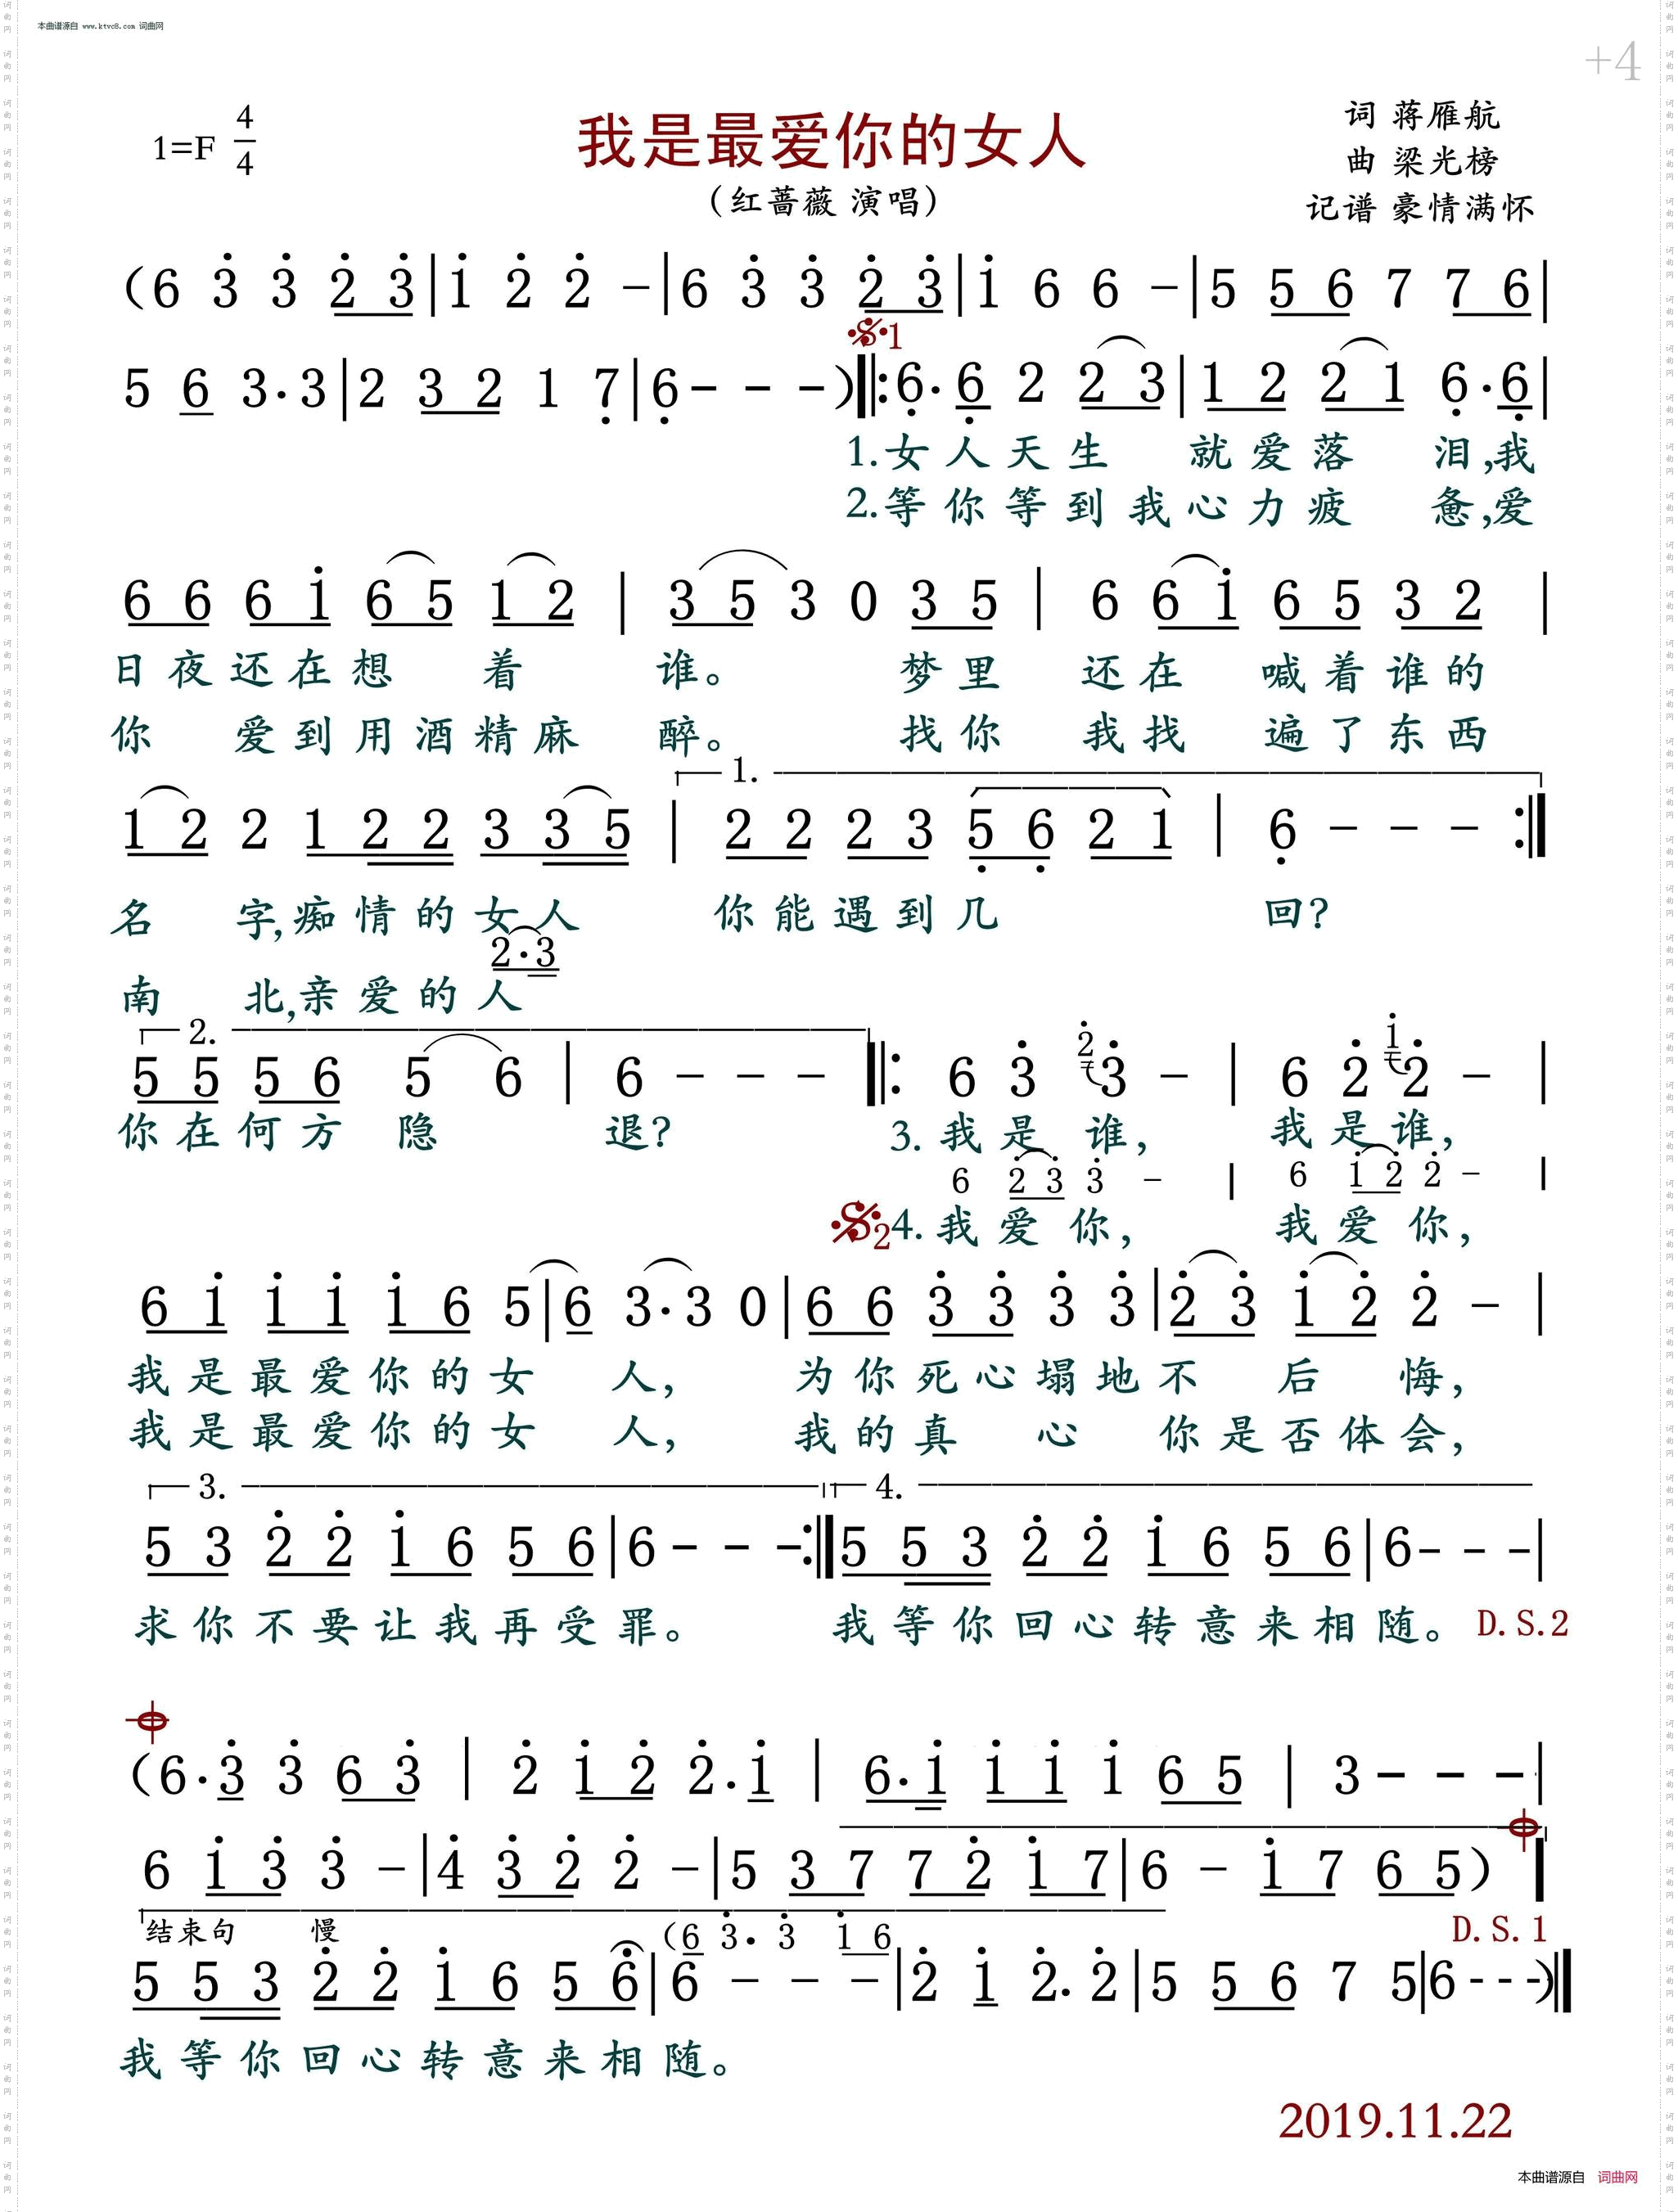 本曲谱源自 www.ktvc8.com 词曲网
+4
1=F 4/4
我是最爱你的女人
（红蔷薇 演唱）
词 蒋雁航
曲 梁光榜
记谱 豪情满怀
（6 3̇ 3̇ 2̇ 3̇|1̇ 2̇ 2̇ －|6 3̇ 3̇ 2̇ 3̇|1̇ 6 6 －|5 5 6 7 7 6|
𝄋1
5 6 3·3|2 3 2 1 7̣|6̣－ － －）‖:6̣·6̣ 2 2 3|1 2 2 1 6̣·6̣|
1.女人天生 就爱落 泪,我
2.等你等到我心力疲 惫,爱
6 6 6 1̇ 6 5 1 2 | 3 5 3 0 3 5 | 6 6 1̇ 6 5 3 2 |
日夜还在想 着 谁。 梦里 还在 喊着谁的
你 爱到用酒精麻 醉。 找你 我找 遍了东西
1.
1 2 2 1 2 2 3 3 5 | 2 2 2 3 5̣ 6̣ 2 1 | 6̣ － － － :‖
名 字,痴情的女人 你能遇到几 回?
2·3
南 北,亲爱的人
2.
5 5 5 6 5 6 | 6 － － － ‖: 6 3̇ 2̇3̇ － | 6 2̇ 1̇2̇ － |
你在何方 隐 退? 3.我是 谁, 我是谁,
6 2̇ 3̇ 3̇ － | 6 1̇ 2̇ 2̇ － |
𝄋2 4.我爱你, 我爱你,
6 1̇ 1̇ 1̇ 1̇ 6 5|6 3·3 0|6 6 3̇ 3̇ 3̇ 3̇|2̇ 3̇ 1̇ 2̇ 2̇ － |
我是最爱你的女 人, 为你死心塌地不 后 悔,
我是最爱你的女 人, 我的真 心 你是否体会,
3. 4.
5 3 2̇ 2̇ 1̇ 6 5 6|6 － － －:‖5 5 3 2̇ 2̇ 1̇ 6 5 6|6－ － －|
求你不要让我再受罪。 我等你回心转意来相随。 D.S.2
（6·3̇ 3̇ 6 3̇ | 2̇ 1̇ 2̇ 2̇·1̇ | 6·1̇ 1̇ 1̇ 1̇ 6 5 | 3－ － －|
6 1̇ 3̇ 3̇ －|4̇ 3̇ 2̇ 2̇ －|5 3 7 7 2̇ 1̇ 7|6 － 1̇ 7 6 5）|
结束句 慢 （6 3̇· 3̇ 1̇ 6 D.S.1
5 5 3 2̇ 2̇ 1̇ 6 5 6|6 － － －|2̇ 1̇ 2̇·2̇|5 5 6 7 5|6－－－）‖
我等你回心转意来相随。
2019.11.22
本曲谱源自 词曲网